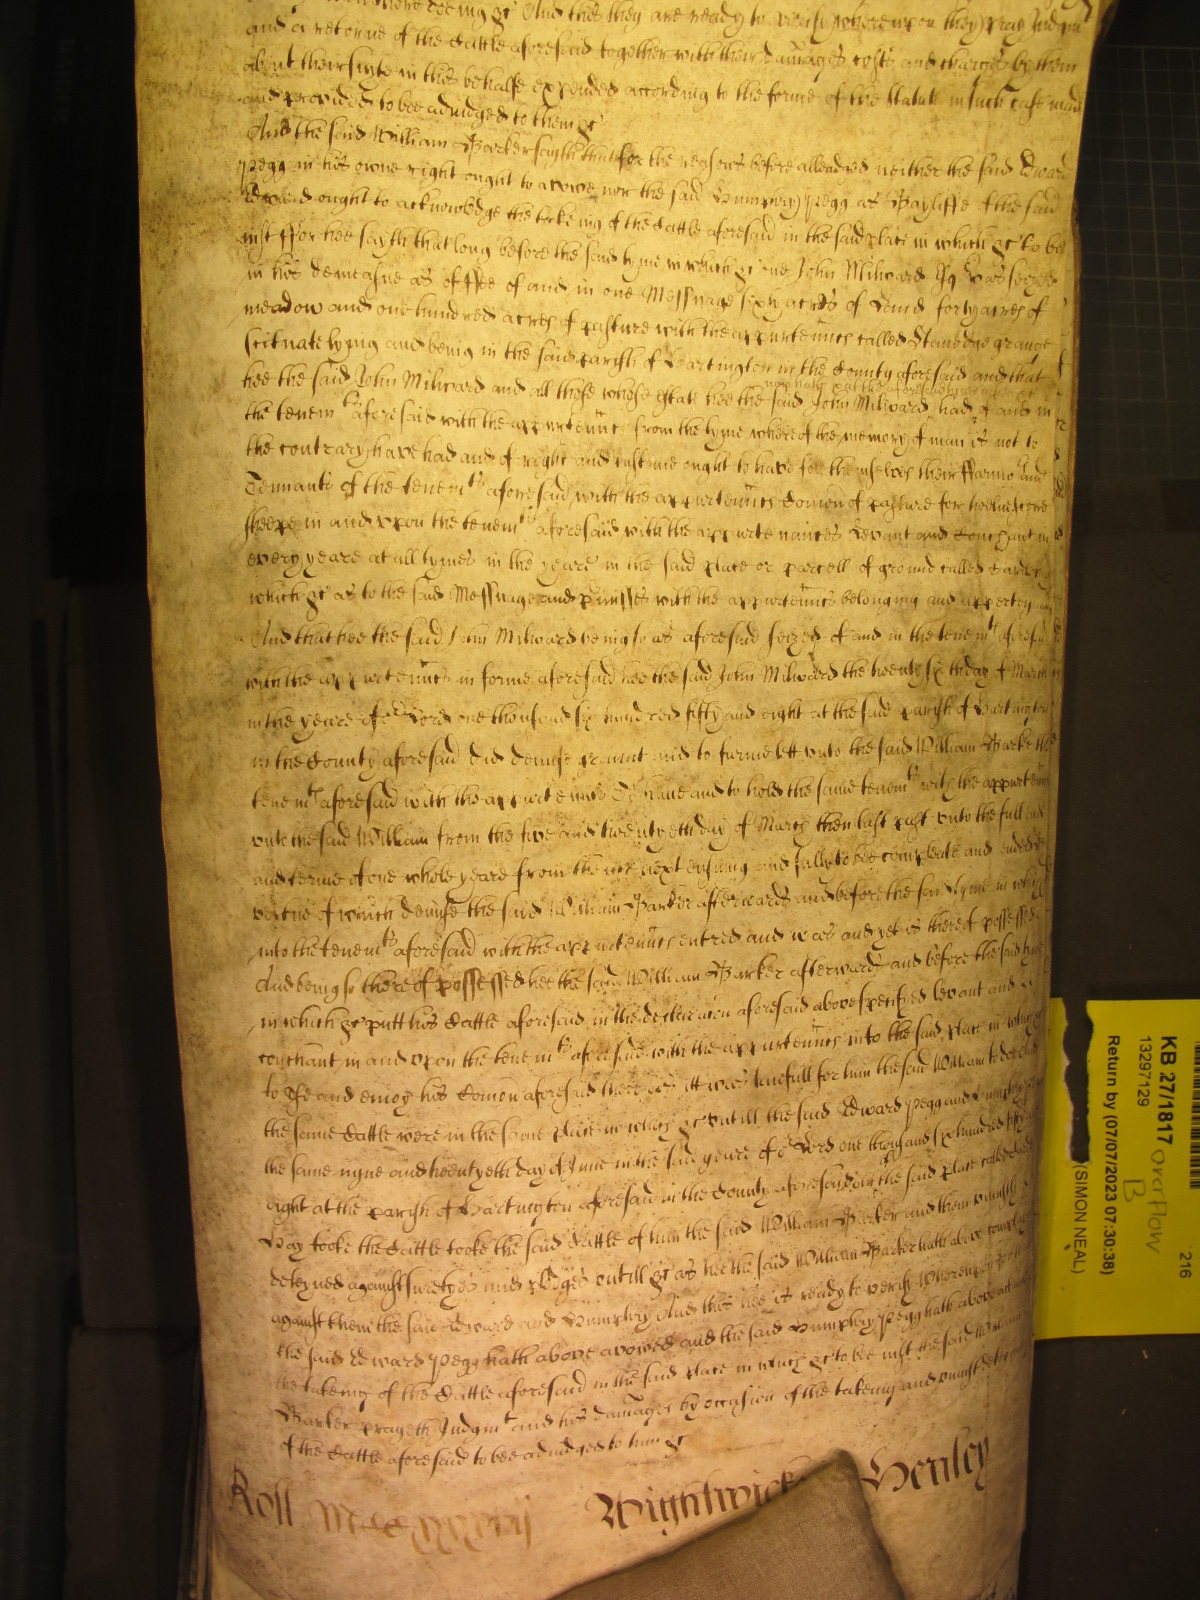 And this they are ready to verify whereupon they pray Judgmt
and a returne of the Cattle aforesaid together with their damages costs and charges by them
about their suite in this behalfe expended according to the forme of the Statute in such case made
and provided to bee adiudged to them &c
And the said William Parker sayth that for the reasons before alleadged neither the said Edward
Pegg in his owne right ought to avowe nor the said Humphry Pegg as Bayliffe of the said
Edward ought to acknowledge the takeing of the Cattle aforesaid in the said place in which &c to be
iust ffor hee sayth that long before the said tyme in which &c one John Milward Esq was seized
in his demeasne as of ffee of and in one Messuage sixty acres of Land forty acres of
meadow and one hundred acres of pasture with the appurtenncs called Stanedge grange
scituate lying and being in the said parish of Hartington in the County aforesaid and that
hee the said John Milward and all those whose estate hee the said John Milward had of and in
the tenemts aforesaid with the appurtenncs from the tyme whereof the memory of man is not to
the contrary have had and of right and custome ought to have for themselves their ffarmo and
Tennants of the tenemts aforesaid with the appurtenncs Comon of pasture for twelve score
sheepe in and upon the tenemts aforesaid with the appurtenances Levant and Couchant in
every yeare at all tymes in the yeare in the said place or parcell of ground called
which &c as to the said Messuage and premisses with the appurtenncs belonging and
And that hee the said John Milward being so as aforesaid seized of and in the tenemts aforesaid
with the appurtenncs in forme aforesaid hee the said John Milward the twenty sixth day of March
in the yeare of or Lord one thousand six hundred fifty and eight at the said parish of Hartington
in the County aforesaid did demise graunt and to farme lett unto the said William Parker the
tenemts aforesaid with the appurtenncs To have and to hold the same tenemts with the appurtenncs
unto the said William from the five and twentyeth day of March then last past unto the full end
and terme of one whole yeare from thence next ensuing and fully to bee compleate and ended By
vertue of which demise the said William Parker afterwards and before the said tyme in which
into the tenemts aforesaid with the appurtenncs entred and was and yet is thereof possessed
And being so thereof possessed hee the said William Parker afterwards and before the said tyme
in which &c putt his Cattle aforesaid in the declaracon aforesaid above specified levant and
couchant in and upon the tenemts aforesaid with the appurtenncs into the said place in which &c
to use and enioy his Comon aforesaid there as itt was lawfull for him the said William to doe And
the same Cattle were in the same place in which &c untill the said Edward Pegg and Humphry
the same nyne and twentyeth day of June in the said yeare of or Lord one thousand six hundred fifty
eight at the parish of Hartington aforesaid in the County aforesaid in the said place called
Hay tooke the Cattle tooke the said Cattle of him the said William Parker and them uniustly
deteyned against suretyes and pledges untill &c as hee the said William Parker hath above
against them the said Edward and Humphry And this hee is ready to verify Whereupon
the said Edward Pegg hath above avowed and the said Humphry Pegg hath above
the takeing of the Cattle aforesaid in the said place in which &c to bee iust the said William
Parker prayeth Judgmt and his damages by occasion of the takeing and uniust
of the Cattle aforesaid to bee adiudged to him &c
Roll Wightwick Henley
KB 27/1817
13297129
Return by (07/07/2023 07:30:38)
(SIMON NEAL)
overflow
B
216